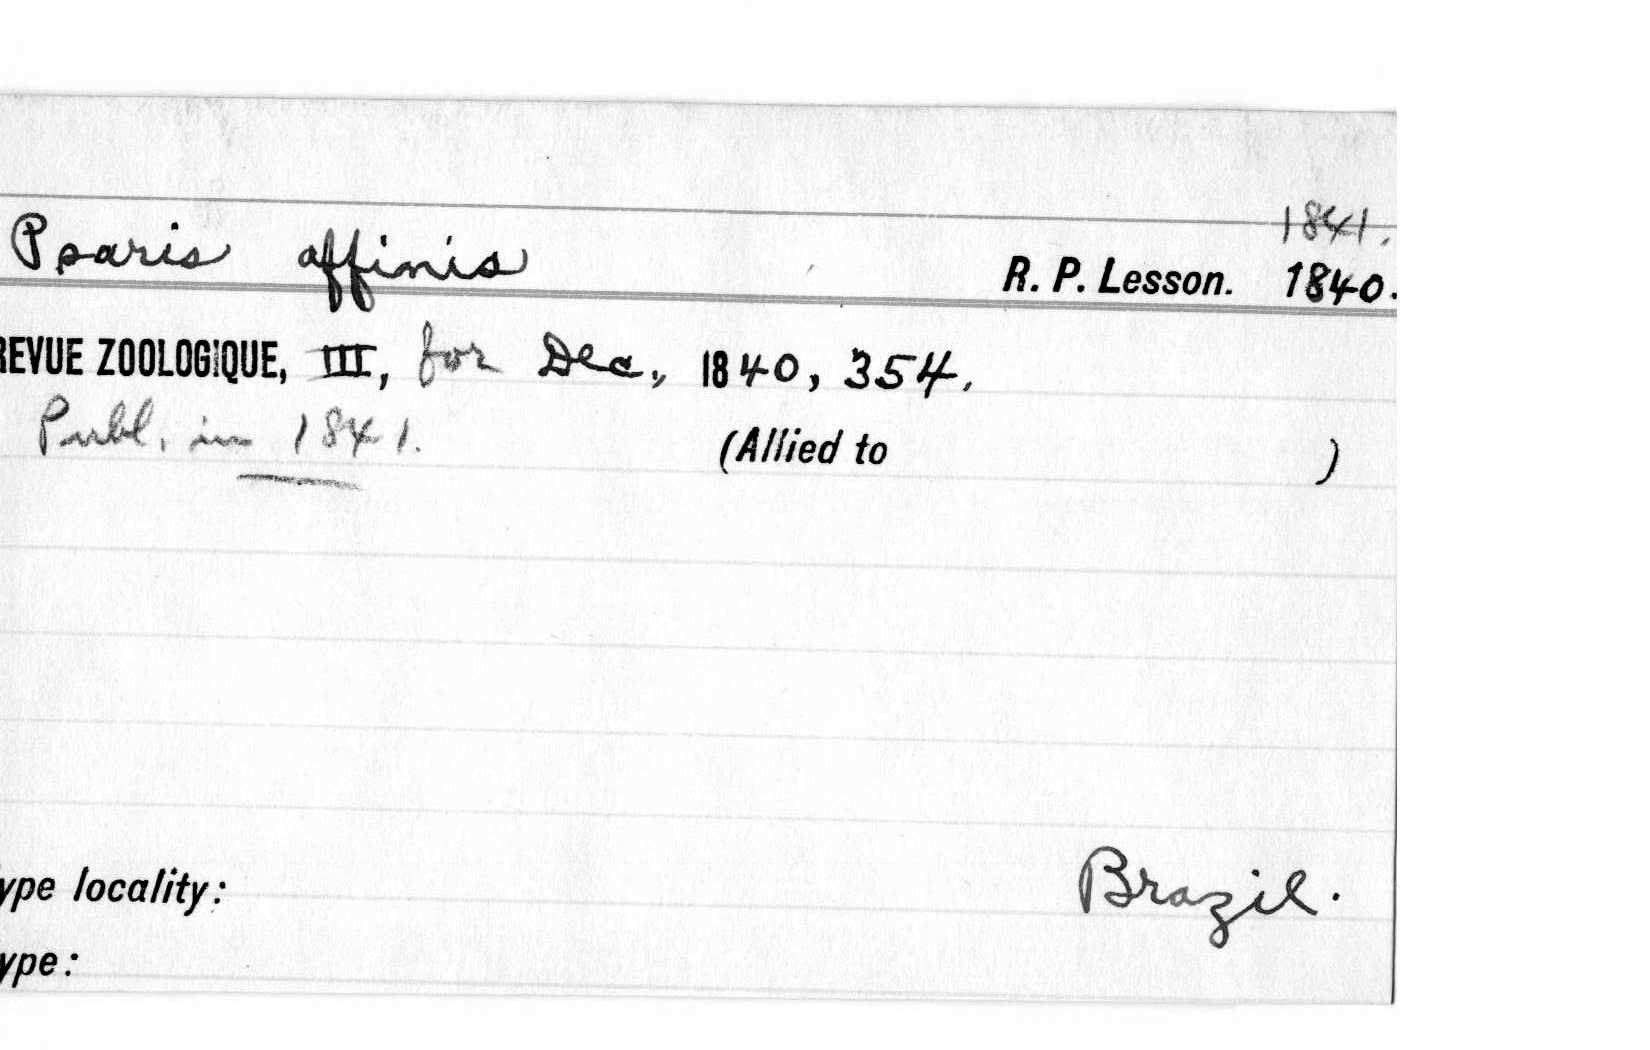 1841.
Psaris affinis R. P. Lesson. 1840.
REVUE ZOOLOGIQUE, III, for Dec., 1840, 354.
Publ. in 1841. (Allied to )
ype locality: Brazil.
ype: